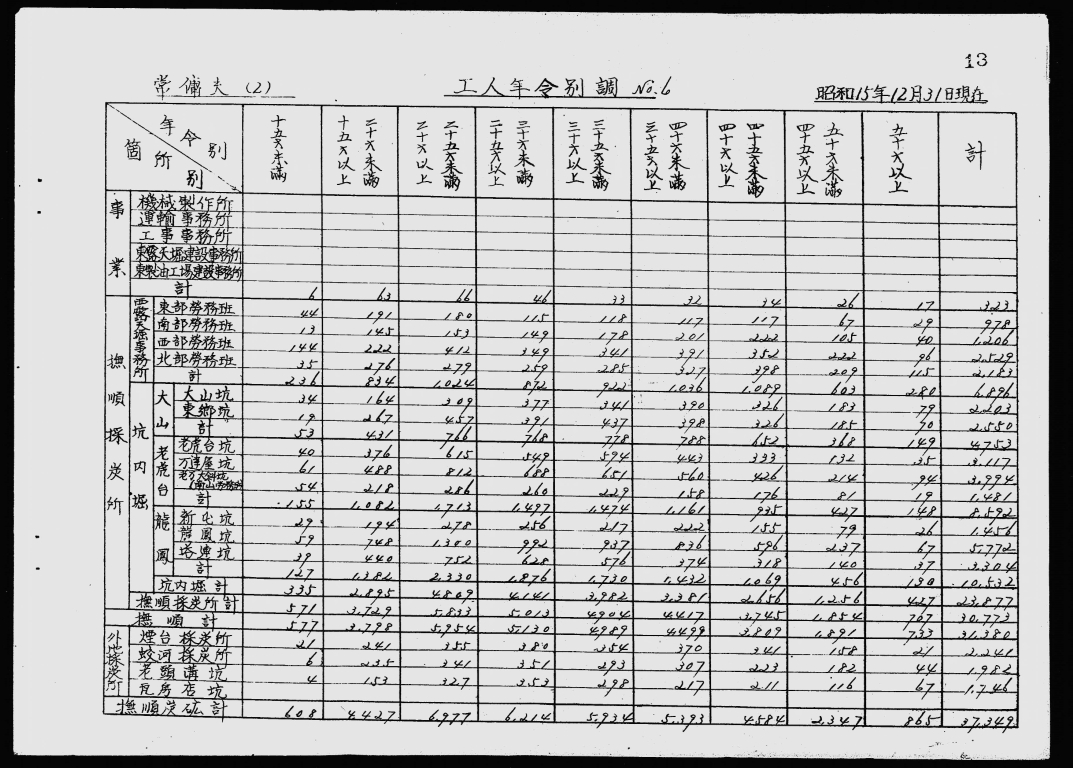 13
常傭夫 (2)
工人年令別調 No.6
昭和15年12月31日現在
年令別
箇所別
十五才未満
十五才以上 二十才未満
二十才以上 二十五才未満
二十五才以上 三十才未満
三十才以上 三十五才未満
三十五才以上 四十才未満
四十才以上 四十五才未満
四十五才以上 五十才未満
五十才以上
計
事業
機械製作所
運輸事務所
工事事務所
東露天掘建設事務所
東製油工場建設事務所
計 6 63 66 46 33 32 34 26 17 323
撫順採炭所
西露天掘事務所
東部勞務班 44 191 180 115 118 117 117 67 29 978
南部勞務班 13 145 153 149 178 201 222 105 40 1,206
西部勞務班 144 222 412 349 341 391 352 222 96 2,529
北部勞務班 35 276 279 259 285 327 398 209 115 2,183
計 236 834 1,024 872 922 1,036 1,089 603 280 6,896
坑内掘
大山
大山坑 34 164 309 377 341 390 326 183 79 2,203
東郷坑 19 267 457 391 437 398 326 185 70 2,550
計 53 431 766 768 778 788 652 368 149 4,753
老虎台
老虎台坑 40 376 615 549 594 443 333 132 35 3,117
万達屋坑 61 488 812 688 651 560 426 214 94 3,994
老万大斜坑(南山勞務班) 54 218 286 260 229 158 176 81 19 1,481
計 155 1,082 1,713 1,497 1,474 1,161 935 427 148 8,592
龍鳳
新屯坑 29 194 278 256 217 222 155 79 26 1,456
龍鳳坑 59 748 1,300 992 937 836 596 237 67 5,772
塔連坑 39 440 752 628 576 374 318 140 37 3,304
計 127 1,382 2,330 1,876 1,730 1,432 1,069 456 130 10,532
坑内掘計 335 2,895 4809 4,141 3,982 3,381 2,656 1,256 427 23,877
撫順採炭所計 571 3,729 5,833 5,013 4904 4417 3,745 1,854 707 30,773
撫順計 577 3,798 5,954 5,130 4989 4499 3809 1,891 733 31,380
外地採炭所
煙台採炭所 21 241 355 380 354 370 341 158 21 2,241
蛟河採炭所 6 235 341 351 293 307 223 182 44 1,982
老頭溝坑 4 153 327 353 298 217 211 116 67 1,746
瓦房店坑
撫順炭砿計 608 4,427 6,977 6,214 5,934 5,393 4584 2,347 865 37,349